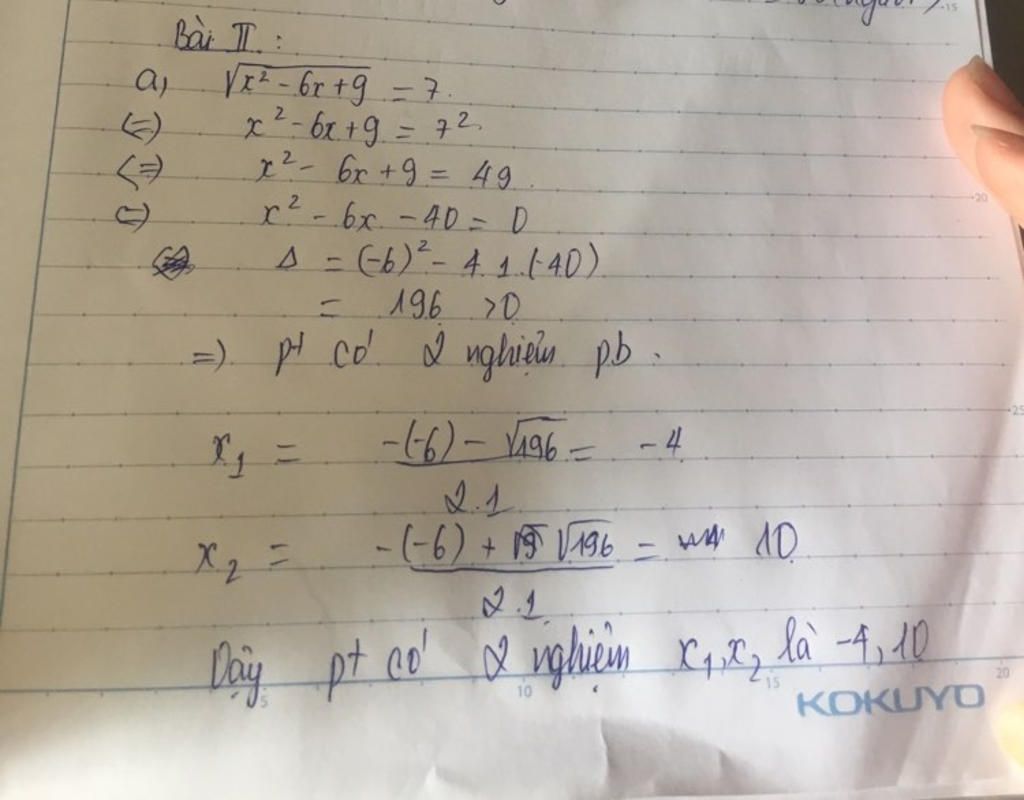 Bài II :
a, √x² - 6x + 9 = 7.
(=) x² - 6x + 9 = 7².
<=> x² - 6x + 9 = 49.
(=) x² - 6x - 40 = 0
Δ = (-6)² - 4.1.(-40)
= 196 >0
=) pt có 2 nghiệm pb.
x₁ = -(-6) - √196 / 2.1 = -4
x₂ = -(-6) + √196 / 2.1 = 10
Vậy pt có 2 nghiệm x₁, x₂ là -4, 10
KOKUYO